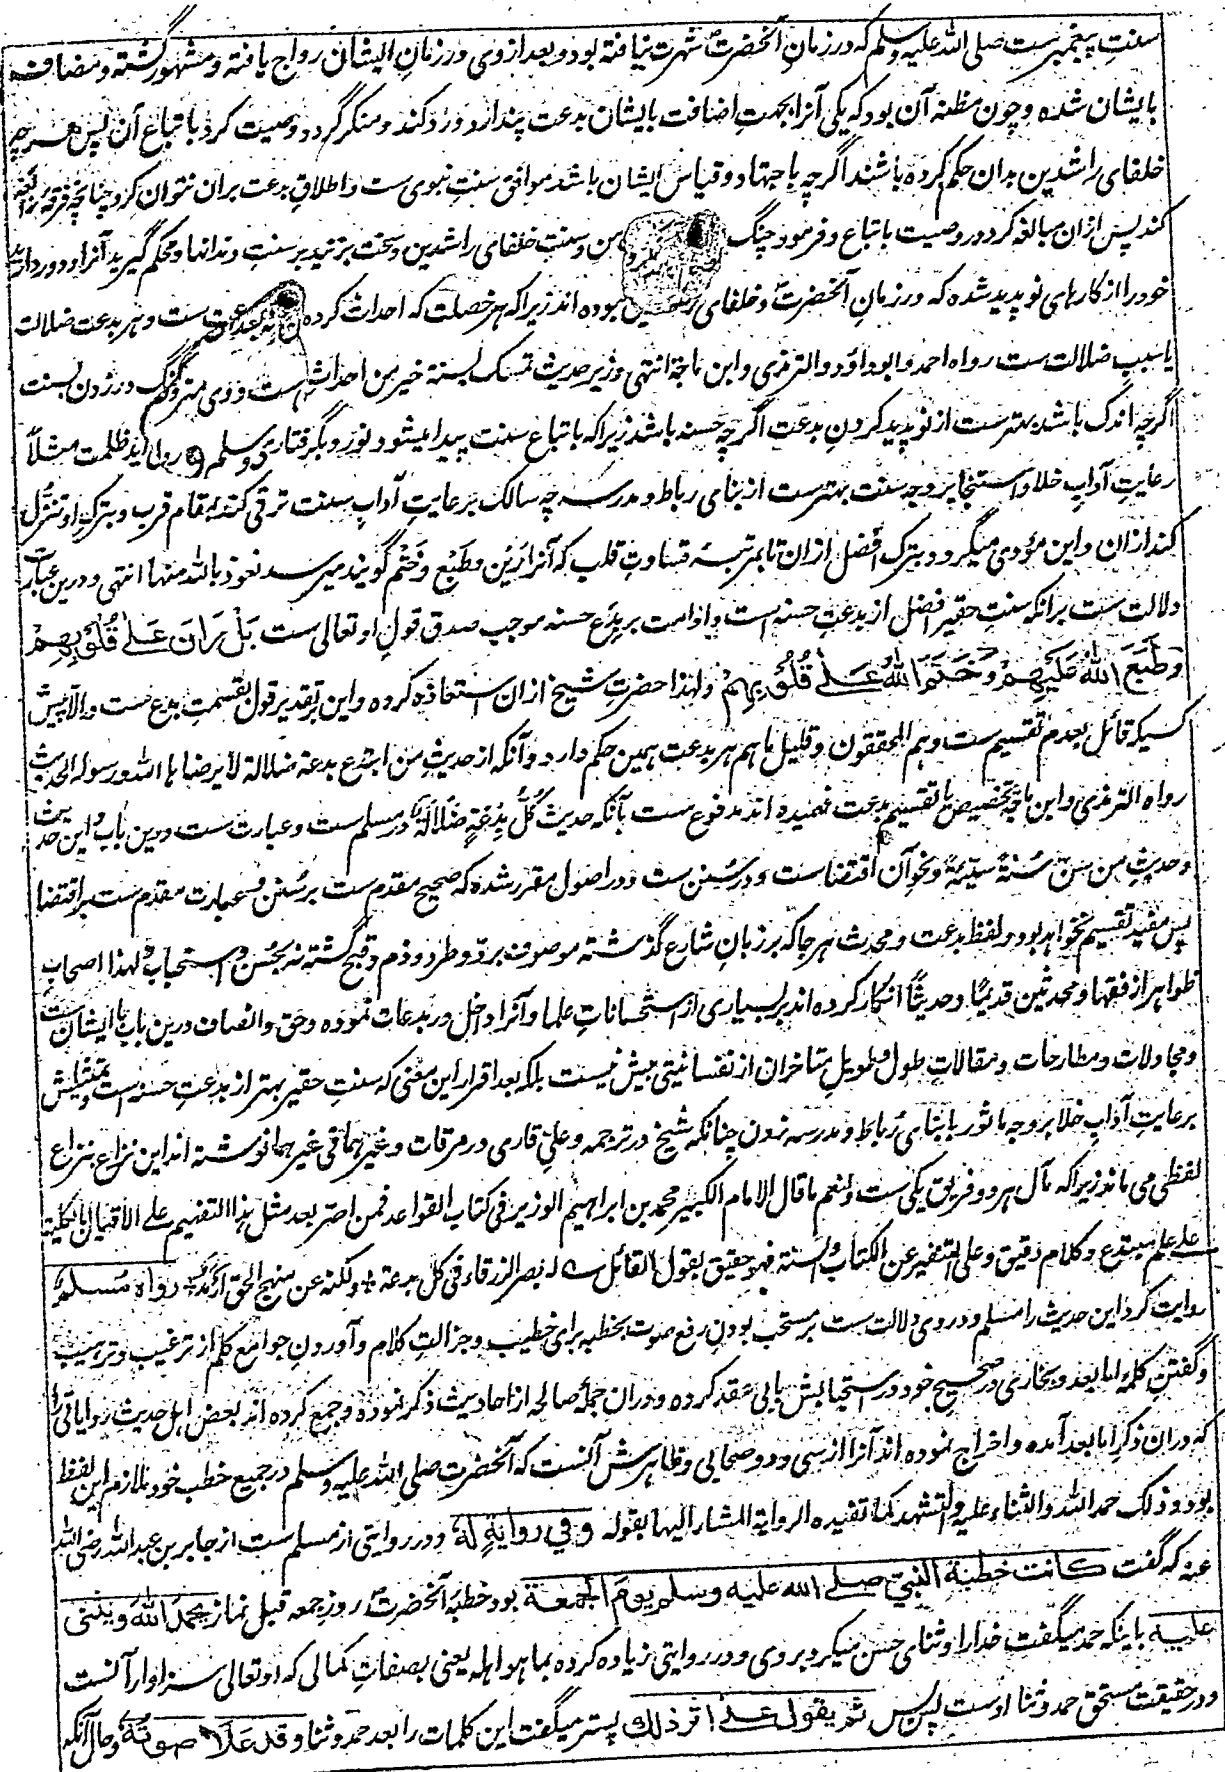 سنتِ پیغمبرست صلی الله علیه وسلم که در زمانِ آنحضرتؐ شهرت نیافته بود و بعد از وی در زمانِ ایشان رواج یافته و مشهور گشته و مضاف
بایشان شده و چون مظنه آن بود که یکی آنرا بجهتِ اضافت بایشان بدعت پندارد و رد کند و منکر گردد وصیت کرد باتباع آن پس هرچه
خلفای راشدین بدان حکم کرده باشند اگرچه باجتهاد و قیاسِ ایشان باشد موافق سنتِ نبوی ست و اطلاقِ بدعت بران نتوان کرد چنانچه فرقه زائغه
کند پس ازان مبالغه کرد در وصیت باتباع و فرمود چنگ من و سنتِ خلفای راشدین و سخت بزنید بر سنتِ دندانها و محکم گیرید آنرا و دور دارید
خود را از کارهای نو پدید شده که در زمانِ آنحضرتؐ و خلفای نبوده اند زیرا که هر خصلت که احداث کرده ست و هر بدعت ضلالت
یا سبب ضلالت ست رواه احمد و ابو داؤد والترمذی وابن ماجة انتهی وزیر حدیث تمسک بسنة خیر من احداث ست و وی در زدن بسنت
اگرچه اندک باشد بهترست از نو پدید کردنِ بدعت اگرچه حسنه باشد زیرا که باتباعِ سنت پیدا میشود نور و بگرفتاری ظلمت مثلاً
رعایتِ آدابِ خلا و استنجا بر وجه سنت بهترست از بنای رباط و مدرسه چه سالک برعایتِ آدابِ سنت ترقی کند بمقام قرب و بترکِ او تنزل
کند ازان و این مؤدی میگردد بترک افضل ازان تا بمرتبهٔ قساوتِ قلب که آنرا رَین و طَبع و خَتم گویند میرسد نعوذ بالله منها انتهی و درین عبارت
دلالت ست برانکه سنتِ حقیر افضل از بدعتِ حسنه است و ادامت بر بدعِ حسنه موجب صدق قولِ او تعالی ست بَلْ رَانَ عَلٰی قُلُوْبِهِمْ
وَطَبَعَ اللهُ عَلَیْهِمْ وَخَتَمَ اللهُ عَلٰی قُلُوْبِهِمْ ولهذا حضرتِ شیخ ازان استعاذه کرده و این بر تقدیر قول بقسمتِ بدع ست والا پیش
کسیکه قائل بعدم تقسیم ست وهم المحققون وقلیل ما هم هر بدعت همین حکم دارد و آنکه از حدیثِ من ابتدع بدعة ضلالة لا یرضاها الله ورسوله الحدیث
رواه الترمذی وابن ماجة تخصیص یا تقسیم بدعت فهمیده اند مدفوع ست بآنکه حدیث کُلُّ بِدْعَةٍ ضَلَالَة در مسلم ست و عبارت ست درین باب و این حدیث
و حدیثِ من سن سُنّةً سیّئةً و نحو آن اقتضاست و در سُنن ست و در اصول مقرر شده که صحیح مقدم ست بر سُنن و عبارت مقدم ست بر اقتضا
پس مفید تقسیم نخواهد بود و لفظ بدعت و محدث هر جا که بر زبانِ شارع گذشته موصوف برد و طرد و ذم و قبح گشته نه بحُسن و استحباب و لهذا اصحابِ
ظواهر از فقها و محدثین قدیمًا و حدیثًا انکار کرده اند بر بسیاری از استحساناتِ علما و آنرا داخل در بدعات نموده و حق و انصاف درین باب با ایشان ست
و مجاولات و مطارحات و مقالاتِ طول طویلِ متأخران از نفسانیتی بیش نیست بلکه بعد اقرار این معنی که سنتِ حقیر بهتر از بدعتِ حسنه است و تمثیلش
برعایتِ آدابِ خلا بر وجه ماثور با بنای رُباط و مدرسه نمودن چنانکه شیخ در ترجمه و علی قاری در مرقات و غیرهما فی غیرهما نوشته اند این نزاع بنزاع
لفظی می ماند زیرا که مآل هر دو فریق یکی ست ونعم ما قال الامام الکبیر محمد بن ابراهیم الوزیر فی کتاب القواعد فمن اصر بعد مثل هذا التفهیم علی الاقبال بالکلیة
علی علم مبتدع وکلام دقیق وعلی التنفیر عن الکتاب والسنة فهو حقیق بقول القائل ؎ له بصر الزرقاء فی کل بدعة ۞ ولکنه عن منهج الحق ارمد ۞ رواه مُسلم
روایت کرد این حدیث را مسلم و در وی دلالت ست بر مستحب بودنِ رفع صوت بخطبه برای خطیب و جزالتِ کلام و آوردنِ جوامع کلم از ترغیب و ترهیب
و گفتنِ کلمهٔ اما بعد و بخاری در صحیح خود در استحبابش بابی عقد کرده و دران جملهٔ صالحه از احادیث ذکر نموده و جمع کرده اند بعض اهل حدیث روایاتی را
که دران ذکر اما بعد آمده و اخراج نموده اند آنرا از سی و دو صحابی و ظاهرش آنست که آنحضرت صلی الله علیه وسلم در جمیع خطب خود ملازم این لفظ
بود وذلک حمد الله والثناء علیه والتشهد کما تفیده الروایة المشار الیها بقوله وفی روایةٍ لهٗ و در روایتی از مسلم ست از جابر بن عبدالله رضی الله
عنه که گفت کانت خطبة النبی صلی الله علیه وسلم یوم الجمعة بود خطبهٔ آنحضرتؐ روز جمعه قبل نماز یحمد الله ویثنی
علیه باینکه حمد میگفت خدا را و ثنای حسن میکرد بر وی و در روایتی زیاده کرده بما هو اهله یعنی بصفاتِ کمالی که او تعالی سزاوار آنست
و در حقیقت مستحق حمد و ثنا اوست پس ثم یقول علی اثر ذلک پستر میگفت این کلمات را بعد حمد و ثنا وقد علا صوتُهٗ و حال آنکه